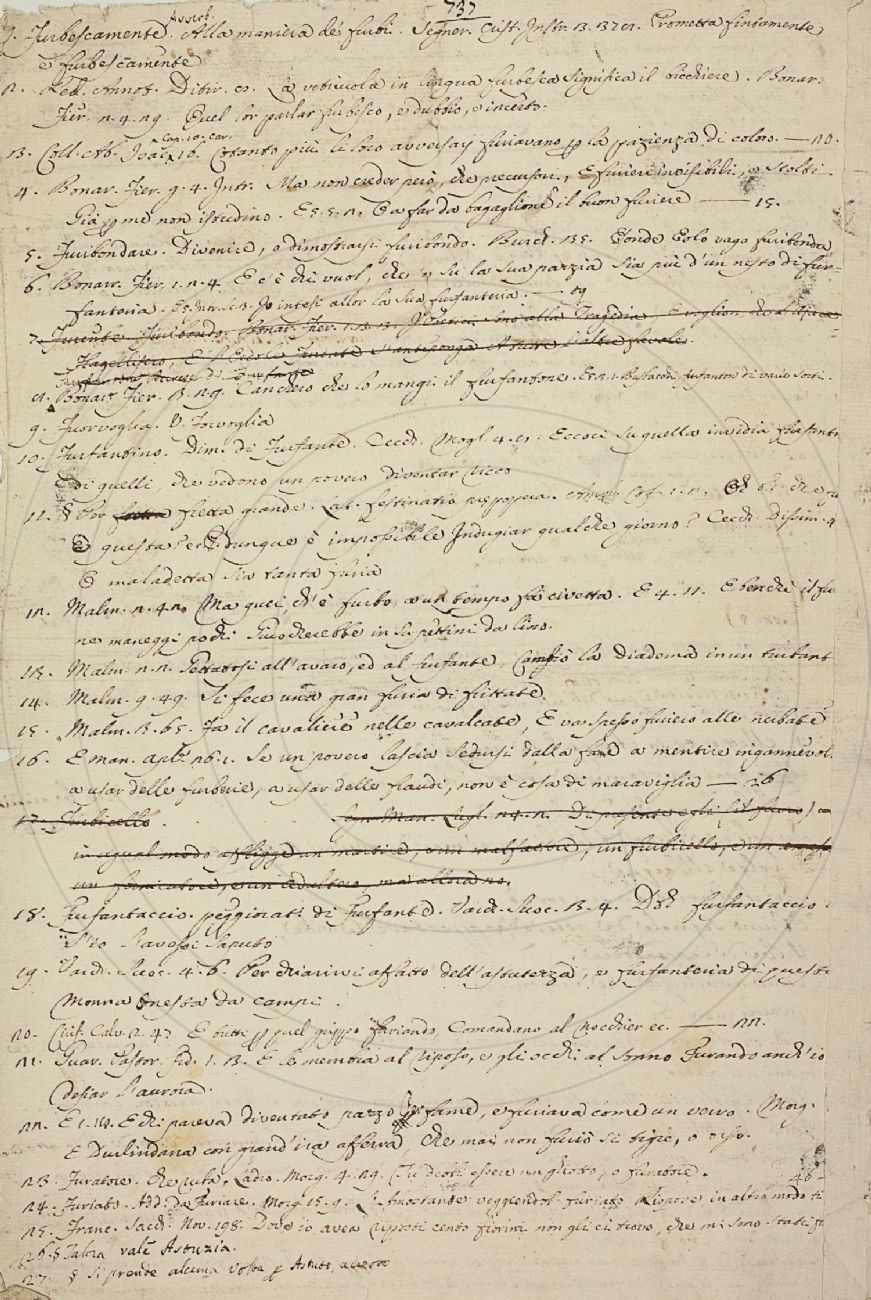 737
Avverb.
1. Furbescamente. Alla maniera de' furbi. Segner. Crist. Instr. 3. 37. 21. Prometta fintamente
e furbescamente
2. Red. Annot. Ditir. La vetriuola in lingua furbesca significa il bicchiere. Bonar.
Fier. 2. 4. 29. Quel lor parlar furbesco, e dubbio, e incerto.
Cap. 10. car.
3. Coll. Ab. Isac. 16. Cotanto più li loro avversarj furiavano p la pazienza di coloro. — 20.
4. Bonar. Fier. g. 4. Intr. Ma non creder però, che precursori, E furieri invisibili, e stolti
Già p me non istudino. E 5. 5. 2. O a far da bagaglione il buon furiere — 15.
5. Furibondare. Divenire, o dimostrarsi furibondo. Burch. 135. Donde Eolo vago furibonda
6. Bonarr. Fier. 1. 2. 4. E c'è chi vuol, che 'n su la sua pazzia Sia più d'un nesto di fur-
fanteria. Io intesi allor la sua furfanteria. — 19
7. Furente. Furibondo. Bonar. Fier. 1. 3. 3.
Flagellifero, E l'Ercole Furente
8. Bonar. Fier. 3. 29. Canchero che lo mangi il furfantone. furfanton di varie sorti.
9. Fuorvoglia. V. Forvoglia
10. Furfantino. Dim. di Furfante. Cecch. Mogl. 4. 9. Eccoci su quella invidia furfantina
di quelli, che vedono un povero diventar ricco
11. § Per fretta grande. Lat. festinatio Cof. 1. 2. Oh oh che furia
è questa? e Dunque è impossibile Indugiar qualche giorno? Cecch. Dissim. 4
O maladetta sia tanta furia
12. Malm. 2. 42. Ma quei, ch'è furbo, a un tempo fa civetta. E 4. 11. E benchè il fu-
ne maneggi pochi Giuocherebbe in su pettini da lino.
13. Malm. 2. 2. all'avaro, ed al furfante, Cambiò la diadema in un turbant
14. Malm. 9. 49. Si fece una gran furia di frittate
15. Malm. 3. 65. Fa il cavaliere nelle cavalcate, E va spesso furiero alle nerbate
16. E Man. Apl. 26. 1. Se un povero lascia sedursi dalla fame a mentire ingannevol.
a usar delle furberie, a usar delle fraudi, non è cosa di maraviglia — 26
17. Furbicello. Segn. Man. Lugl. 24. 2.
in ugual modo affligge un martire, e un malfattore, un furbicello, e un
un fornicatore, e un adultero, ma allora no.
18. Furfantaccio. peggiorat. di Furfante. Varch. Suoc. 3. 4. Doh furfantaccio.
S'io l'avessi saputo
19. Varch. Suoc. 4. 6. Per chiarirvi affatto dell'astutezza, e furfanteria di questa
Monna Onesta da campi.
20. Criss. Calv. 2. 47. E tutti p quel giuppo furiando, Comandano al nocchier ec. — 22.
21. Guar. Pastor. Fid. 1. 3. E le membra al riposo, e gli occhi al sonno Furando anch'io
desiar l'aurora.
22. E 1. 14. E chi pareva diventato pazzo Per fame, e furiava come un verro. Morg.
E Durlindana con grand'ira afferra, Che mai non furiò sì tigre, o orso.
23. Furatore. Che ruba, Ladro. Morg. 4. 29. Tu debbi essere un ghiotto, o furatore.
46 —
24. Furiato. Add. da Furiare. Morg. 15. 9. L'Amostante veggendol furiato Rispose in altro modo ti
25. Franc. Sacch. Nov. 198. Dove io avea riposti cento fiorini non gli ci trovo, che mi sono stati fu
26. § Talora vale Astuzia.
27. § Si prende alcuna volta p Astuto, accorto